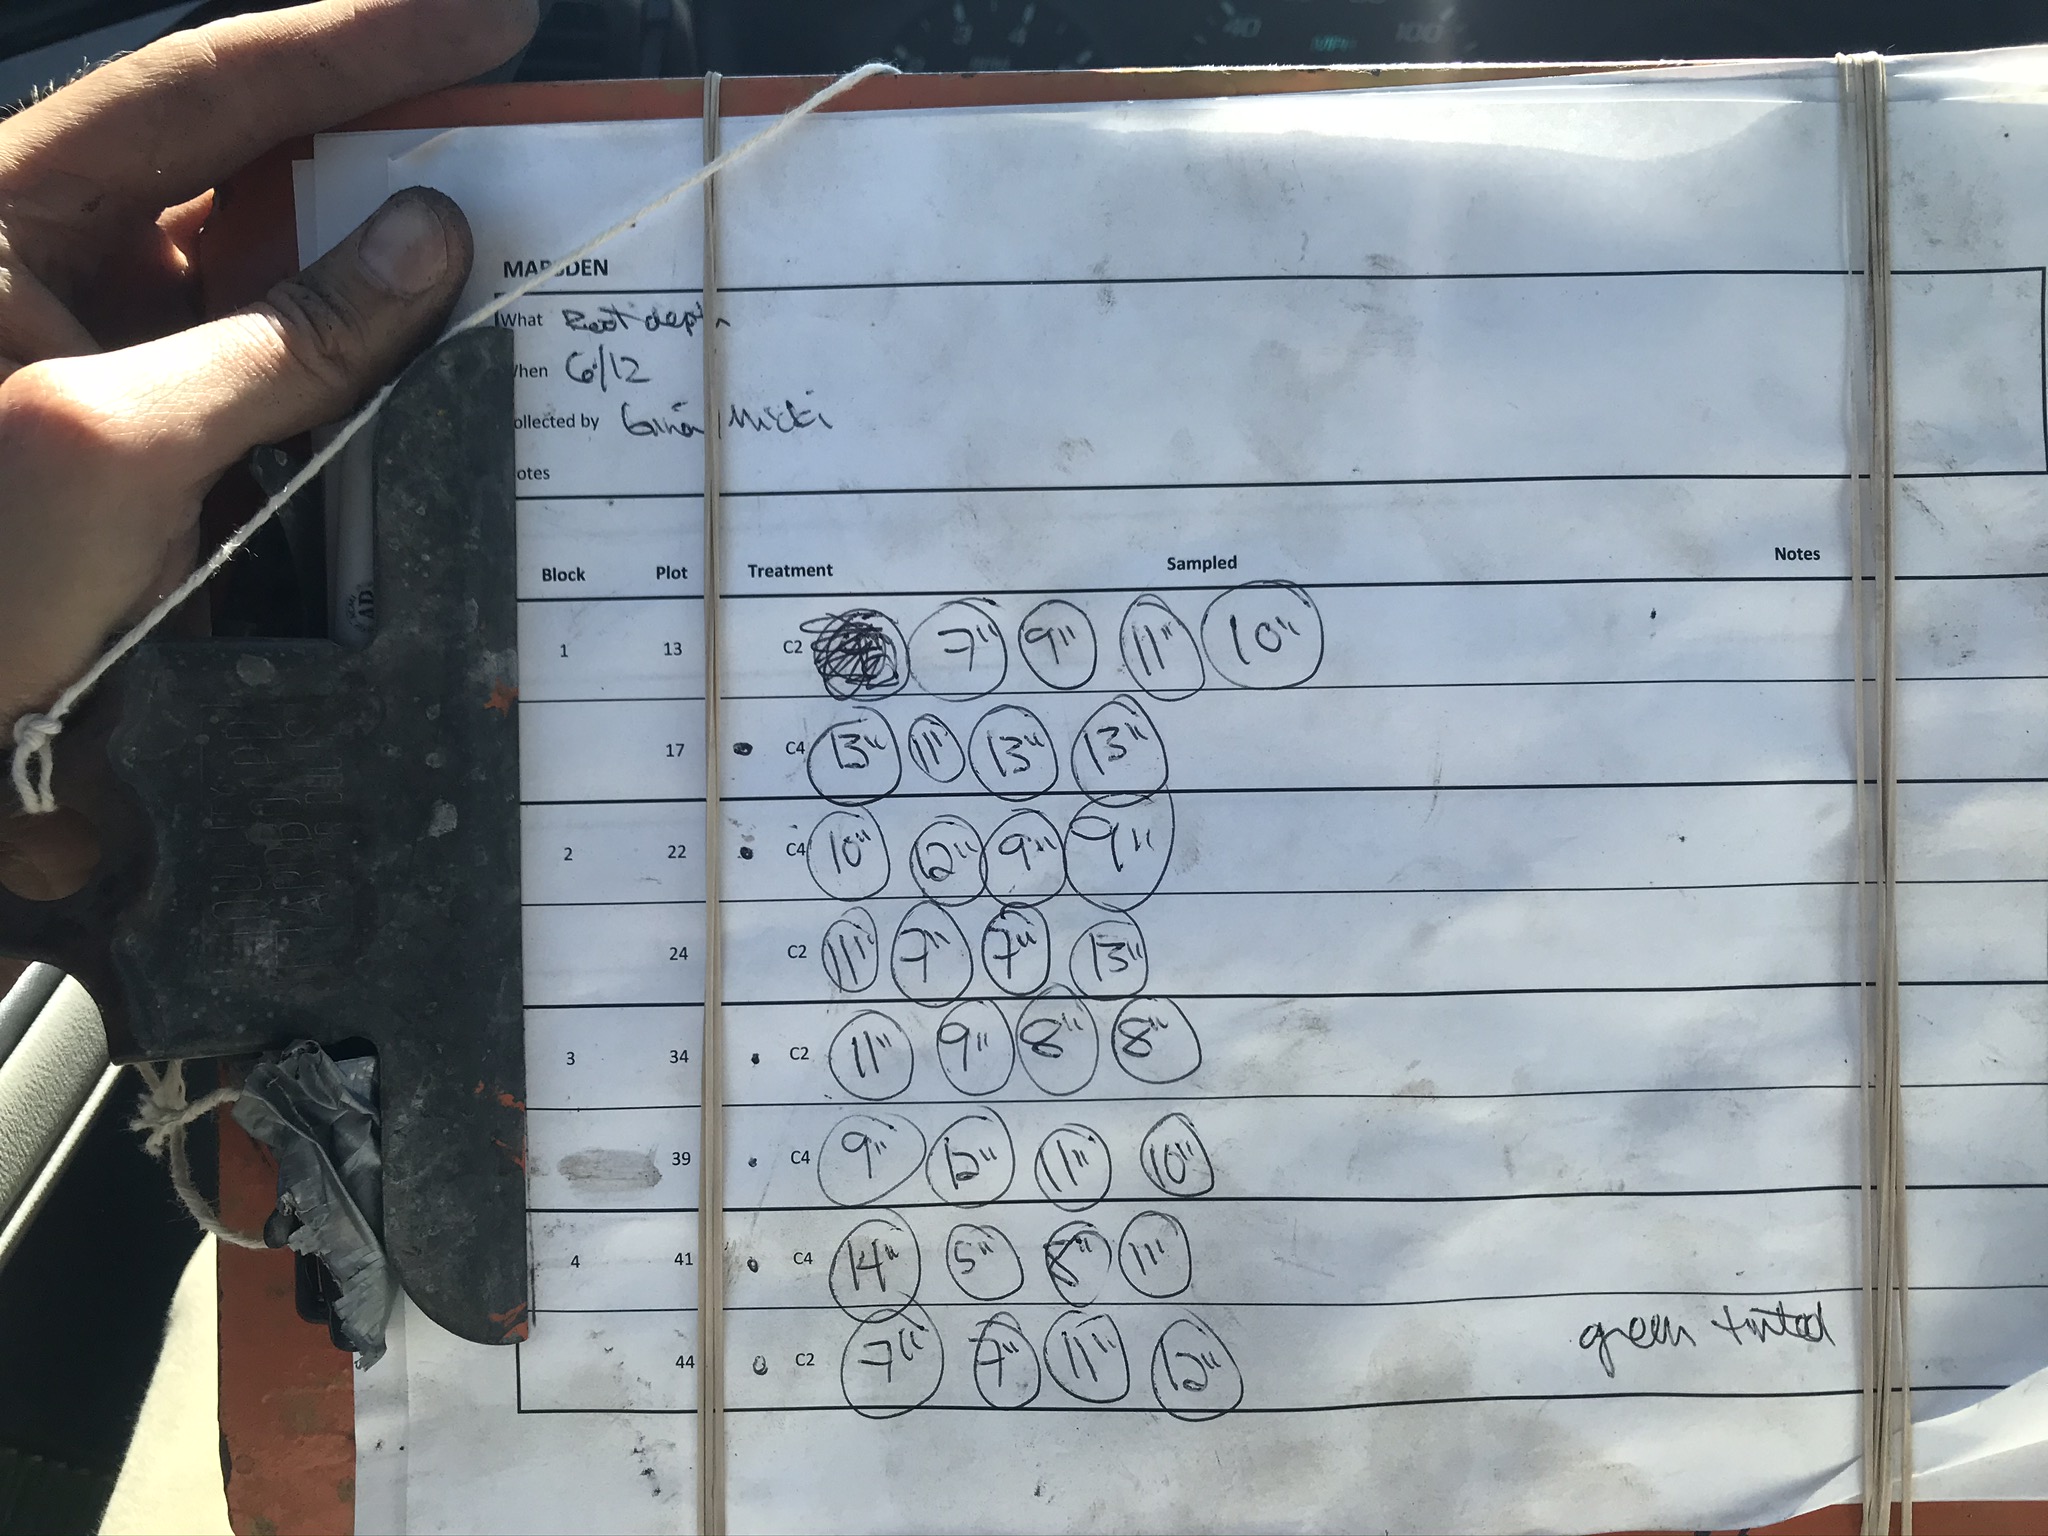 3 4
40 MPH 100
MARSDEN
What Root depth
When 6/12
ollected by Gina, Micki
otes
Block Plot Treatment Sampled Notes
1 13 C2 7" 9" 11" 10"
17 C4 13" 11" 13" 13"
2 22 C4 10" 12" 9" 9"
24 C2 11" 7" 7" 13"
3 34 C2 11" 9" 8" 8"
39 C4 9" 12" 11" 10"
4 41 C4 14" 5" 8" 11"
44 C2 7" 7" 11" 12" green tinted